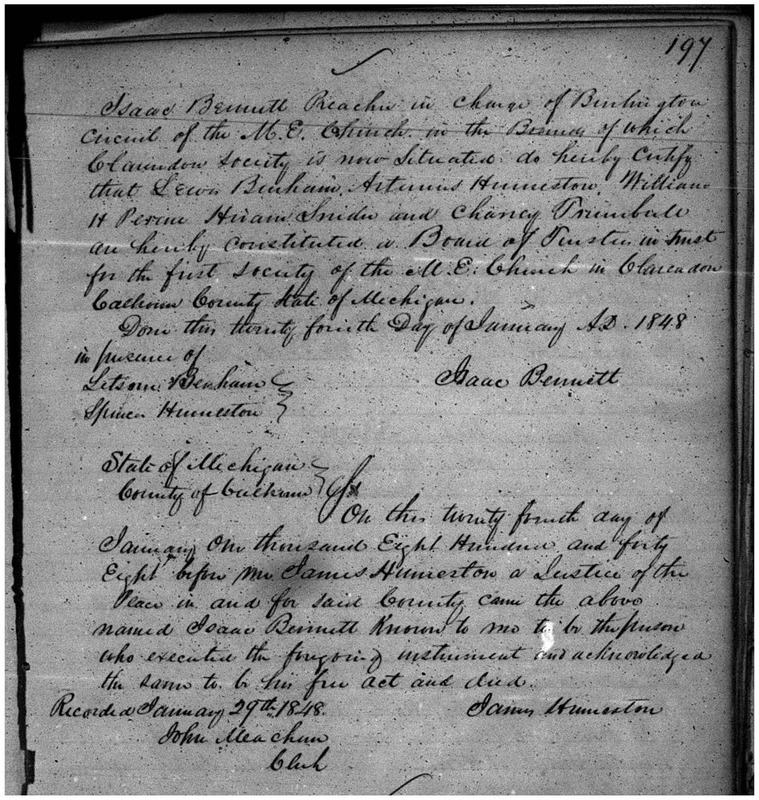 197
Isaac Bennett Preacher in charge of Burlington
circuit of the M.E. Church in the Bounds of which
Clarendon society is now Situated do hereby Certify
that Lewis Benham, Artemus Humeston, William
H Perine Hiram Snider and Chancy Trumbull
are hereby Constituted a Board of Trustees in trust
for the first Society of the M.E. Church in Clarendon
Calhoun County State of Michigan.
Done this twenty fourth Day of January A.D. 1848
in presence of
Letsom Benham
Isaac Bennett
Spincer Humeston
State of Michigan
County of Calhoun } Ss
On this twenty fourth day of
January One thousand Eight Hundred and forty
Eight before me James Humeston a Justice of the
Peace in and for said County came the above
named Isaac Bennett Known to me to be the person
who executed the foregoing instrument and acknowledged
the same to be his free act and deed.
Recorded January 29th 1848.
James Humeston
John Meachum
Clerk